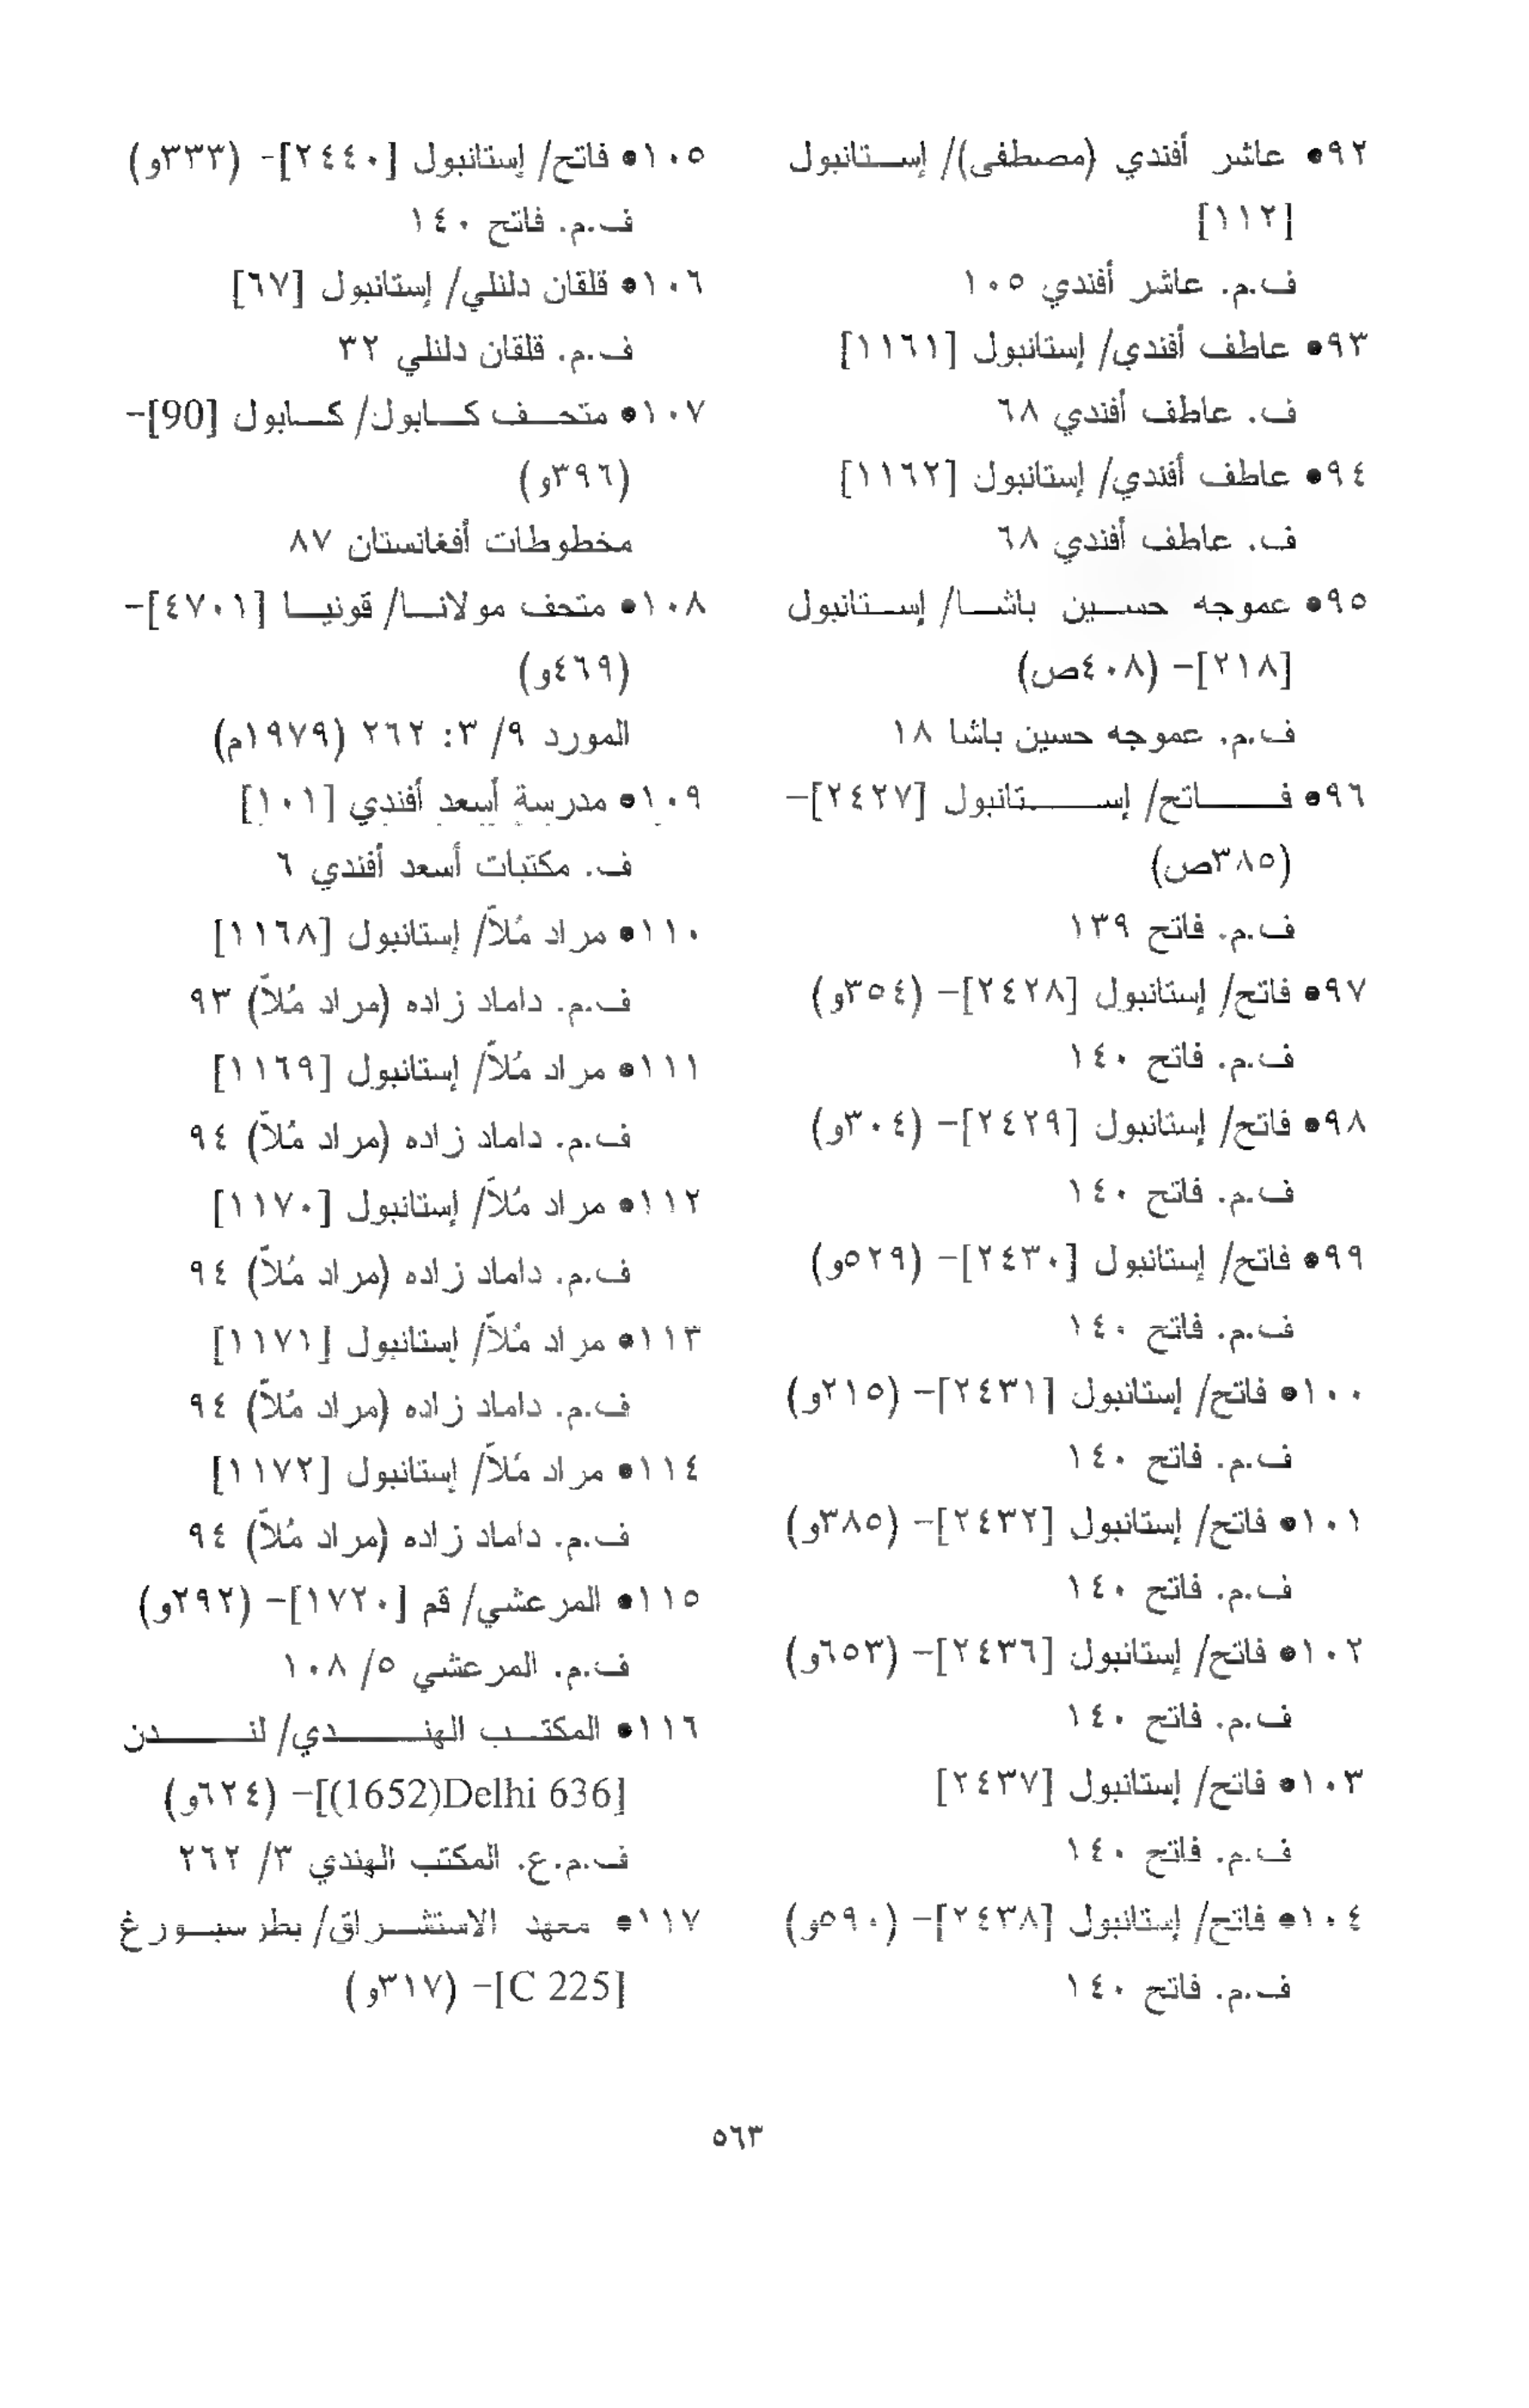 ٩٢• عاشر أفندي (مصطفى)/ إستانبول
[١١٢]
ف.م. عاشر أفندي ١٠٥
٩٣• عاطف أفندي/ إستانبول [١١٦١]
ف. عاطف أفندي ٦٨
٩٤• عاطف أفندي/ إستانبول [١١٦٢]
ف. عاطف أفندي ٦٨
٩٥• عموجه حسين باشا/ إستانبول
[٢١٨]- (٤٠٨ص)
ف.م. عموجه حسين باشا ١٨
٩٦• فاتح/ إستانبول [٢٤٢٧]-
(٣٨٥ص)
ف.م. فاتح ١٣٩
٩٧• فاتح/ إستانبول [٢٤٢٨]- (٣٥٤و)
ف.م. فاتح ١٤٠
٩٨• فاتح/ إستانبول [٢٤٢٩]- (٣٠٤و)
ف.م. فاتح ١٤٠
٩٩• فاتح/ إستانبول [٢٤٣٠]- (٥٢٩و)
ف.م. فاتح ١٤٠
١٠٠• فاتح/ إستانبول [٢٤٣١]- (٢١٥و)
ف.م. فاتح ١٤٠
١٠١• فاتح/ إستانبول [٢٤٣٢]- (٣٨٥و)
ف.م. فاتح ١٤٠
١٠٢• فاتح/ إستانبول [٢٤٣٦]- (٦٥٣و)
ف.م. فاتح ١٤٠
١٠٣• فاتح/ إستانبول [٢٤٣٧]
ف.م. فاتح ١٤٠
١٠٤• فاتح/ إستانبول [٢٤٣٨]- (٥٩٠و)
ف.م. فاتح ١٤٠
١٠٥• فاتح/ إستانبول [٢٤٤٠]- (٣٣٣و)
ف.م. فاتح ١٤٠
١٠٦• قلقان دلنلي/ إستانبول [٦٧]
ف.م. قلقان دلنلي ٣٢
١٠٧• متحف كابول/ كابول [90]-
(٣٩٦و)
مخطوطات أفغانستان ٨٧
١٠٨• متحف مولانا/ قونيا [٤٧٠١]-
(٤٦٩و)
المورد ٩/ ٣: ٢٦٢ (١٩٧٩م)
١٠٩• مدرسة أسعد أفندي [١٠١]
ف. مكتبات أسعد أفندي ٦
١١٠• مراد مُلاّ/ إستانبول [١١٦٨]
ف.م. داماد زاده (مراد مُلاّ) ٩٣
١١١• مراد مُلاّ/ إستانبول [١١٦٩]
ف.م. داماد زاده (مراد مُلاّ) ٩٤
١١٢• مراد مُلاّ/ إستانبول [١١٧٠]
ف.م. داماد زاده (مراد مُلاّ) ٩٤
١١٣• مراد مُلاّ/ إستانبول [١١٧١]
ف.م. داماد زاده (مراد مُلاّ) ٩٤
١١٤• مراد مُلاّ/ إستانبول [١١٧٢]
ف.م. داماد زاده (مراد مُلاّ) ٩٤
١١٥• المرعشي/ قم [١٧٢٠]- (٢٩٢و)
ف.م. المرعشي ٥/ ١٠٨
١١٦• المكتب الهندي/ لندن
[Delhi 636(1652)]- (٦٢٤و)
ف.م.ع. المكتب الهندي ٣/ ٢٦٢
١١٧• معهد الاستشراق/ بطرسبورغ
[C 225]- (٣١٧و)
٥٦٣